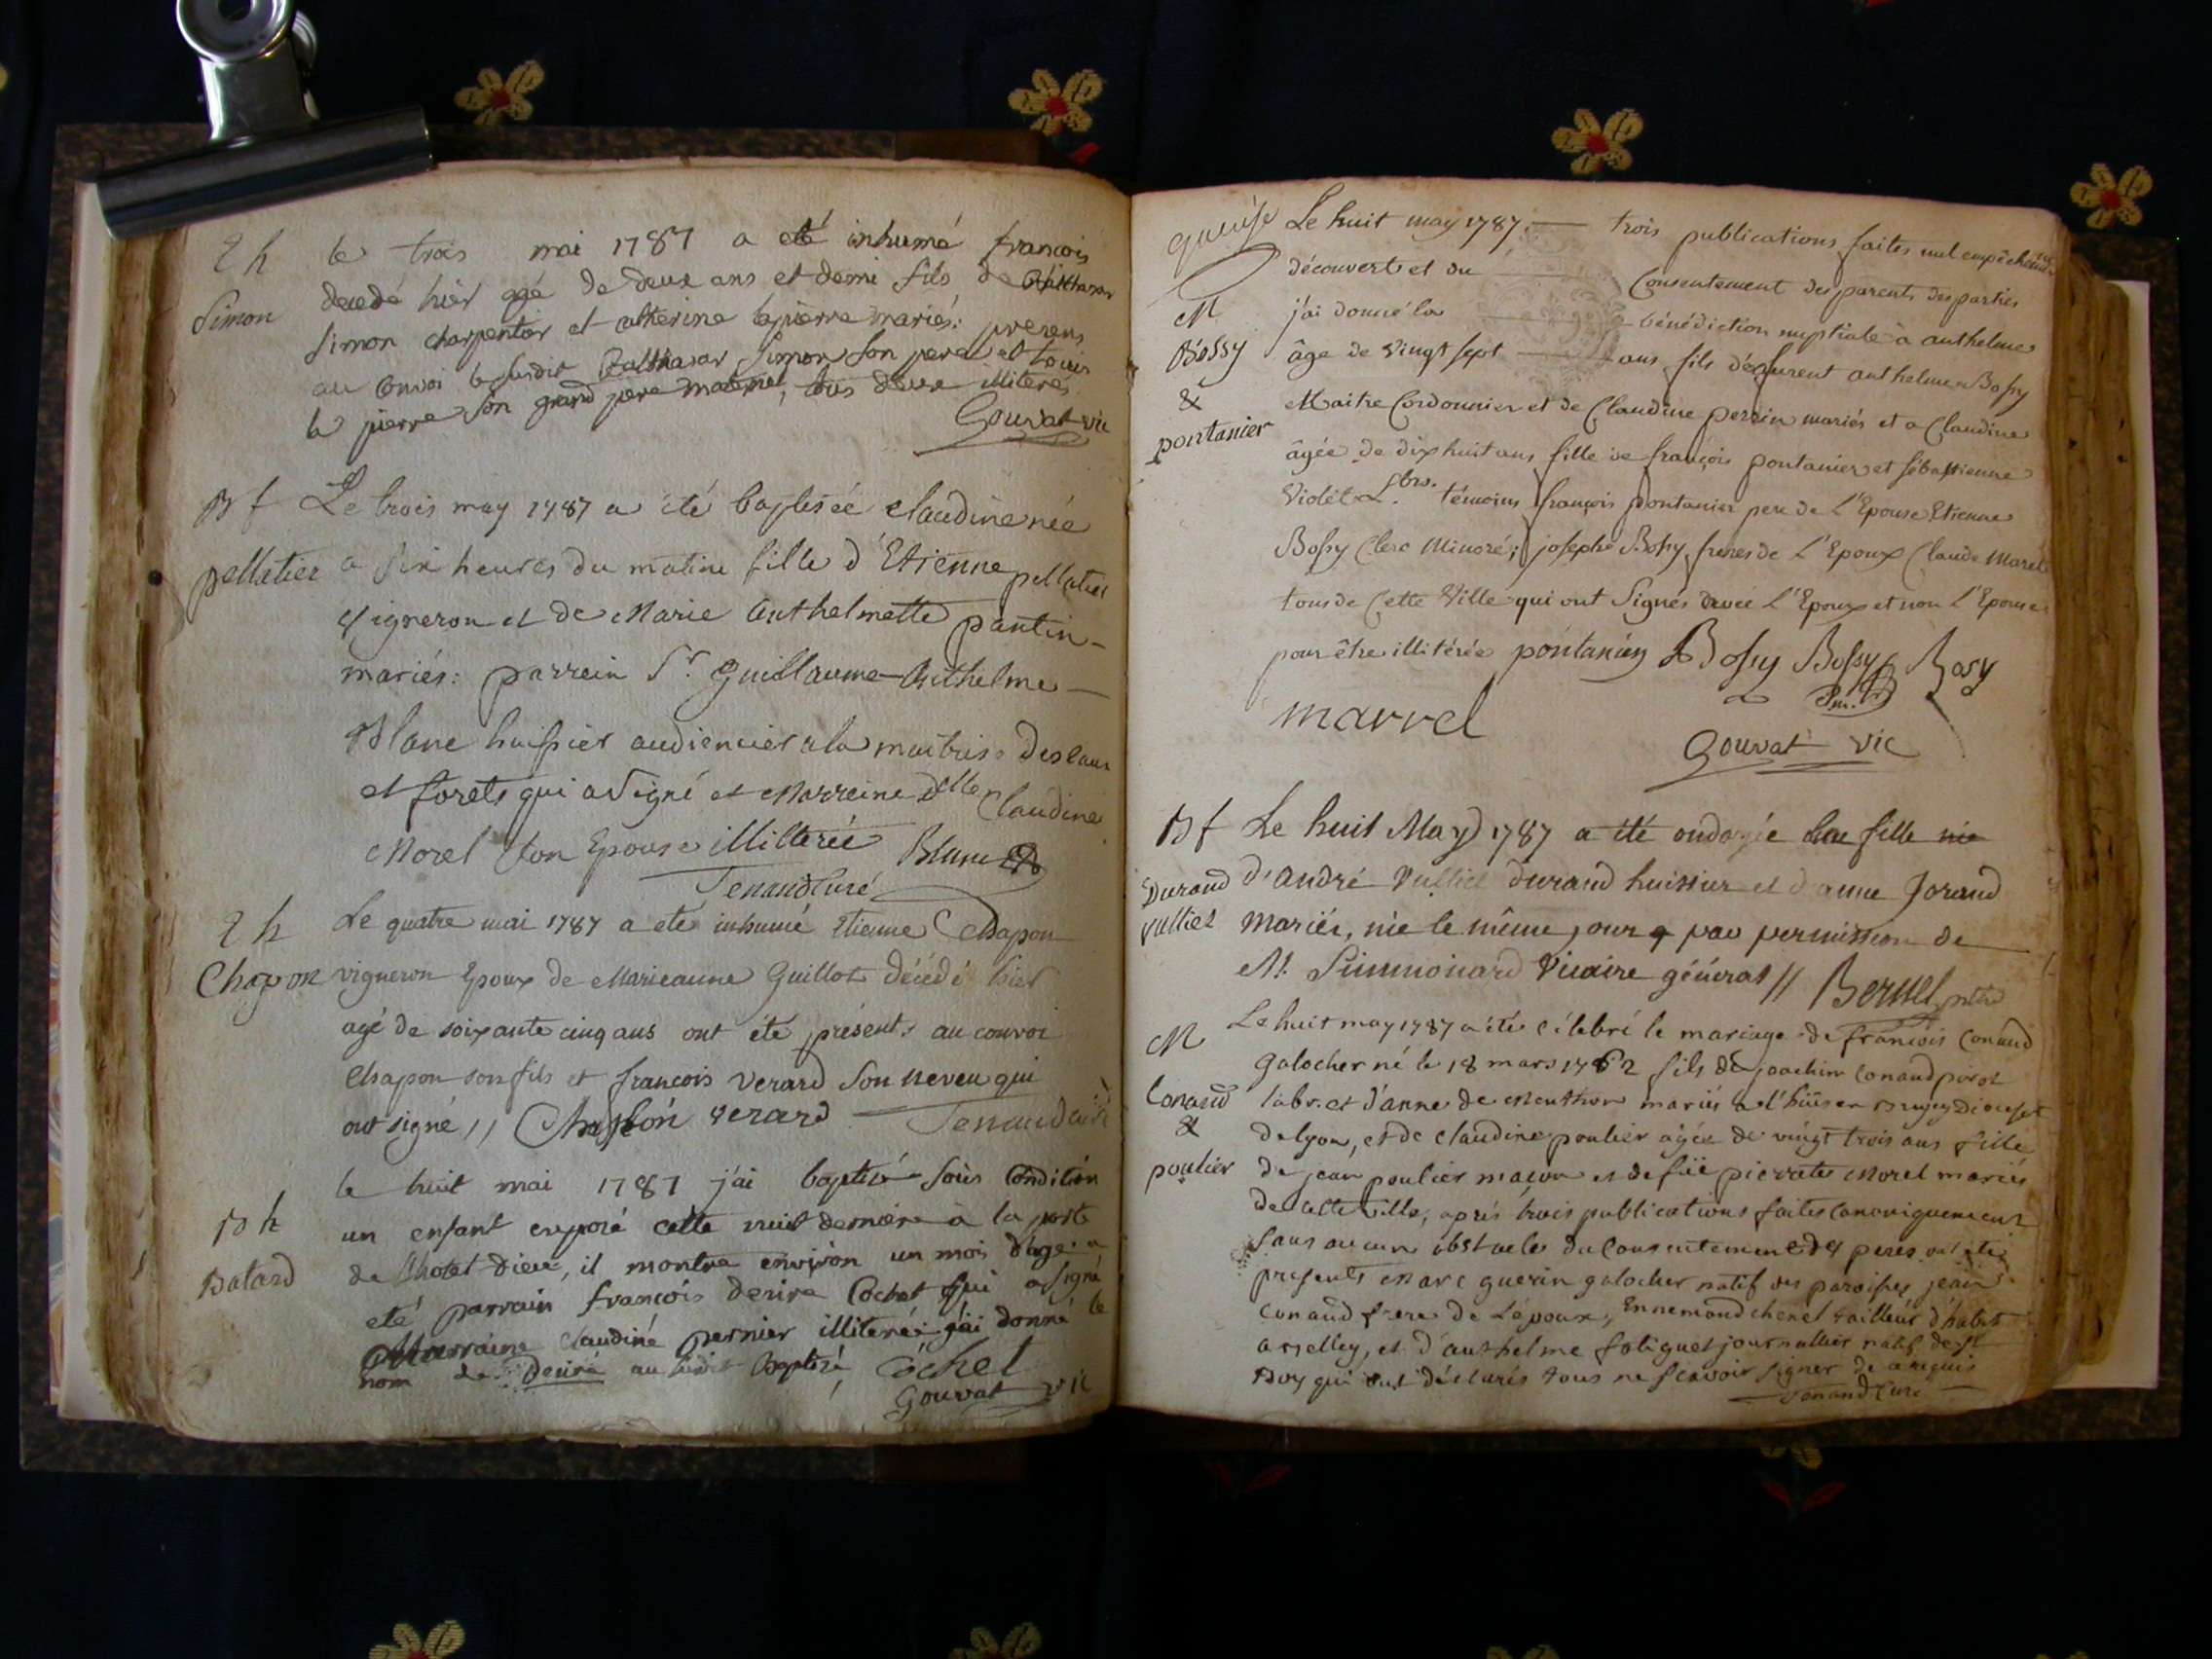 2 h
Simon
le trois mai 1787 a eté inhumé francois
decedé hier agé de deux ans et demi fils de Balthasar
Simon charpentier et catherine lapierre mariés: presens
au convoi le susdit Balthasar Simon son pere et louis
la pierre son grand pere maternel, tous deux illiterés
Gouvat vic
B f
pellatier
Le trois may 1787 a été baptisée claudine née
a six heures du matin fille d'Etienne pellatier
vigneron et de Marie Anthelmette pantin
mariés: parrein Sr. Guillaume Anthelme
Blanc huissier audiencier a la maitrise des eaux
et forets qui a signé et Marreine Dlle Claudine
Morel son Epouse illitterée Blanc
Tenand Curé
2 h
Chapon
Le quatre mai 1787 a eté inhumé Etienne Chapon
vigneron Epoux de Marieanne Guillot décédé hier
agé de soixante cinq ans ont été présents au convoi
Chapon son fils et francois verard son neveu qui
ont signé // Chapon verard Tenand curé
B h
Batard
le huit mai 1787 j'ai baptisé sous condition
un enfant exposé cette nuit derniere à la porte
de l'hotel dieu, il montre environ un mois d'age. a
eté parrain francois desire Cochet qui a signé
Marraine claudine pernier illiterée j'ai donné le
nom de Desiré au susdit baptisé Cochet
Gouvat vic
M
Bossy
&
pontanier
Le huit may 1787. trois publications faites nul empêchement
découvert et du consentement des parents des parties
j'ai donné la bénédiction nuptiale à anthelme
âge de vingt sept ans fils de furent anthelme Bossy
Maitre Cordonnier et de Claudine perrin mariés et a Claudine
âgée de dix huit ans fille de françois pontanier et sébastienne
Violet témoins françois pontanier pere de L'Epouse Etienne
Bossy Clerc Minoré; joseph Bossy freres de L'Epoux Claude Marel
tous de Cette Ville qui ont Signés avec L'Epoux et non L'Epouse
pour être illitérée pontanier Bossy Bossy Bosy
marrel
Gouvat vic
B f
Durand
vulliet
Le huit May 1787 a été ondoyée une fille née
d'André Vulliet durand huissier et d'anne Jorand
Mariés, née le même jour par permission de
M. Simmonard Vicaire général // Bernel
M
Conand
&
poulier
Le huit may 1787 a été célebré le mariage de francois Conand
galocher né le 18 mars 1762 fils de joachim conand pirot
labr. et d'anne de menthon mariés a l'huis en Bugey diocese
de lyon, et de claudine poulier agée de vingt trois ans fille
de jean poulier maçon et de füe pierrette Morel mariés
de cette ville, après trois publications faites canoniquement
sans aucun obstacle du consentement des peres ont été
presents Marc guerin galocher natif des paroisses jean
conand frere de Lépoux, Ennemond chenel tailleur d'habits
a , et d'anthelme foliguet journallier natif de
Boy qui ont déclarés tous ne scavoir signer de ce requis
Tenand Curé